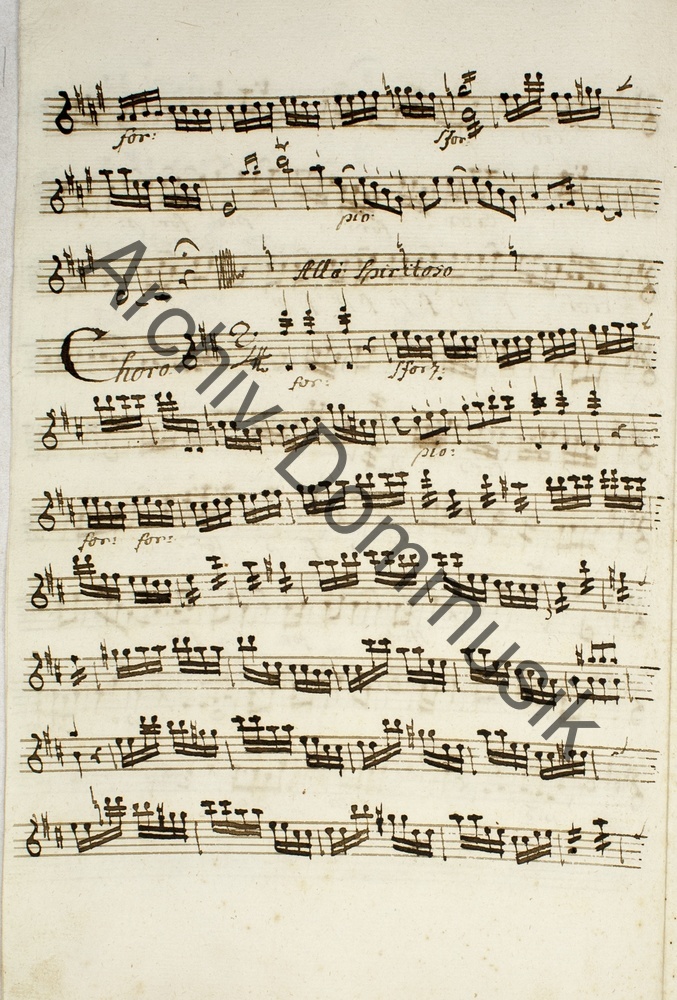 for: sfor
pio
All.o Spiritoso
Choro 2/4 for: sforz:
pio:
for: for:
Archiv Dommusik